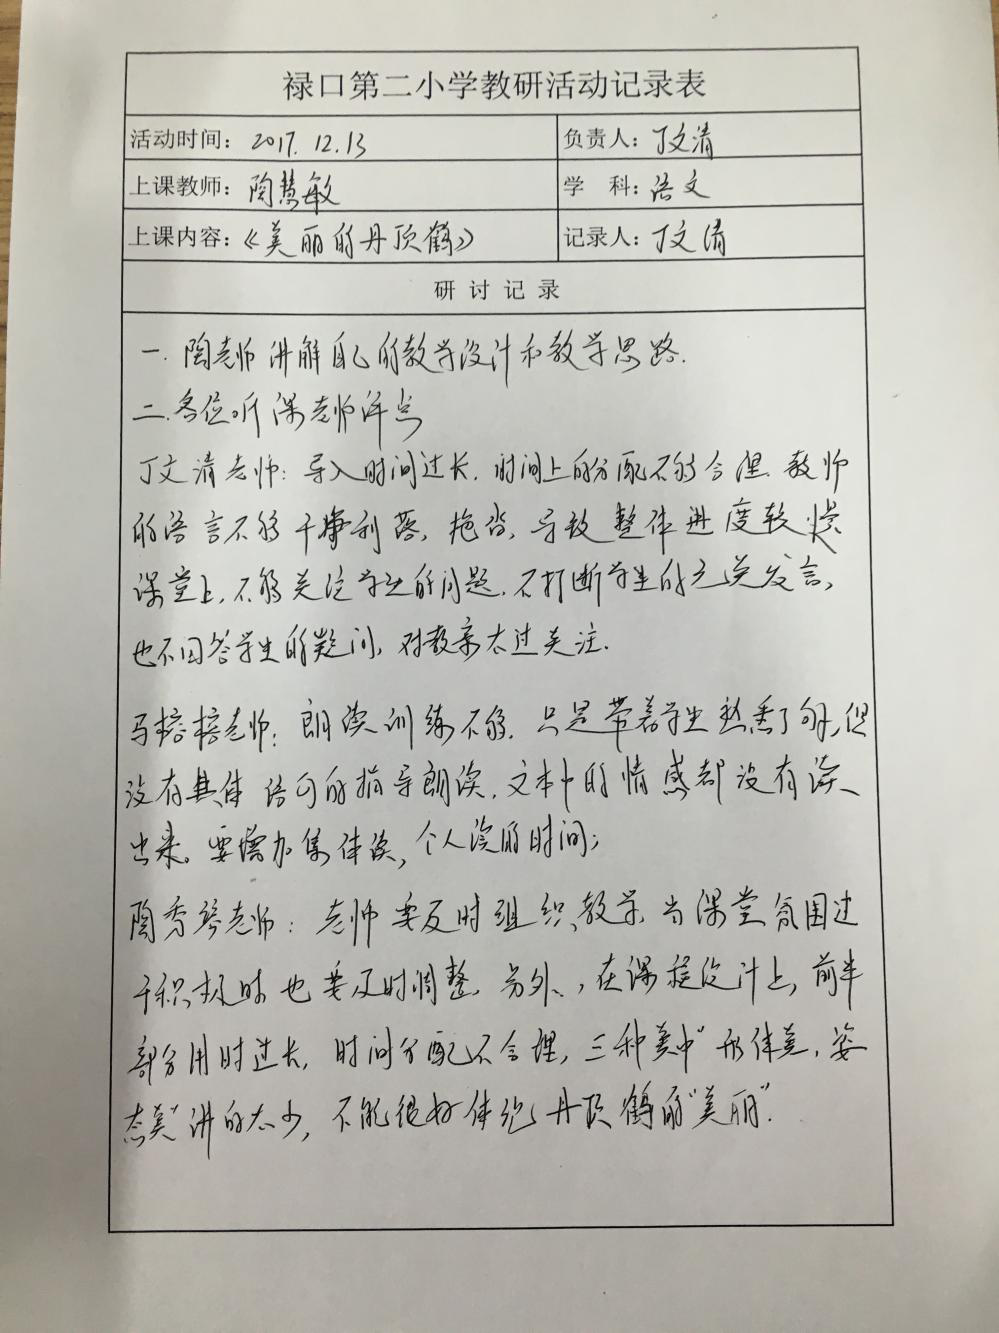 禄口第二小学教研活动记录表
活动时间：2017.12.13 负责人：丁文清
上课教师：陶慧敏 学 科：语文
上课内容：《美丽的丹顶鹤》 记录人：丁文清
研 讨 记 录
一.陶老师讲解自己的教学设计和教学思路.
二.各位听课老师评点
丁文清老师：导入时间过长.时间上的分配不够合理.教师
的语言不够干净利落，拖沓，导致整体进度较慢
课堂上，不够关注学生的问题.不打断学生的无关发言，
也不回答学生的疑问，对教案太过关注.
马榕榕老师：朗读训练不够.只是带着学生熟悉了句，但
没有具体语句的指导朗读.文本中的情感都没有读
出来。要增加集体读，个人读的时间；
陶秀琴老师：老师要及时组织教学，当课堂氛围过
于积极时也要及时调整.另外，在课程设计上，前半
部分用时过长，时间分配不合理，三种美中"形体美，姿
态美"讲的太少，不能很好体现丹顶鹤的"美丽".